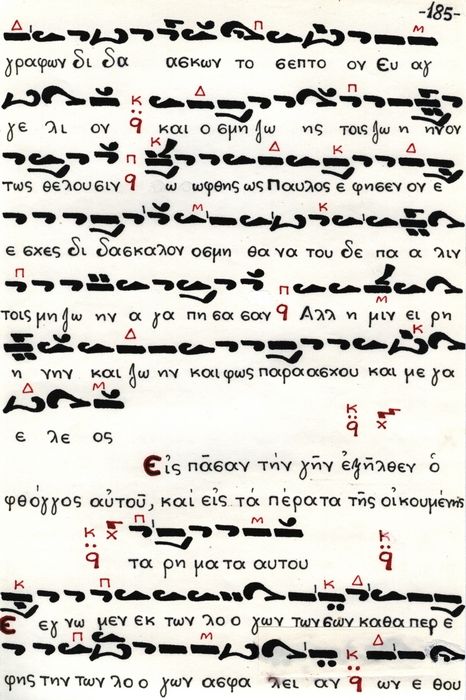 -185-
γραφων δι δα ασκων το σεπτο ον Ευ αγ
γε λι ον και ο σμη ζω ης τοις ζω η ηνον
τως θελουσιν ω ωφθης ως Παυλος ε φησεν ον ε
ε σχες δι δασκαλον οσμη θα να του δε πα α λιν
τοις μη ζω ην α γα πη σα σαν Αλλ η μιν ει ρη
η νην και ζω ην και φως παρα ασχου και με γα
ε λε ος
Εἰς πᾶσαν τὴν γῆν ἐξῆλθεν ὁ
φθόγγος αὐτοῦ, καὶ εἰς τὰ πέρατα τῆς οἰκουμένης
τα ρη μα τα αυτου
Ε εγ νω μεν εκ των λο ο γων των σων καθα περ ε
φης την των λο ο γων ασφα λει αν ων ε θου